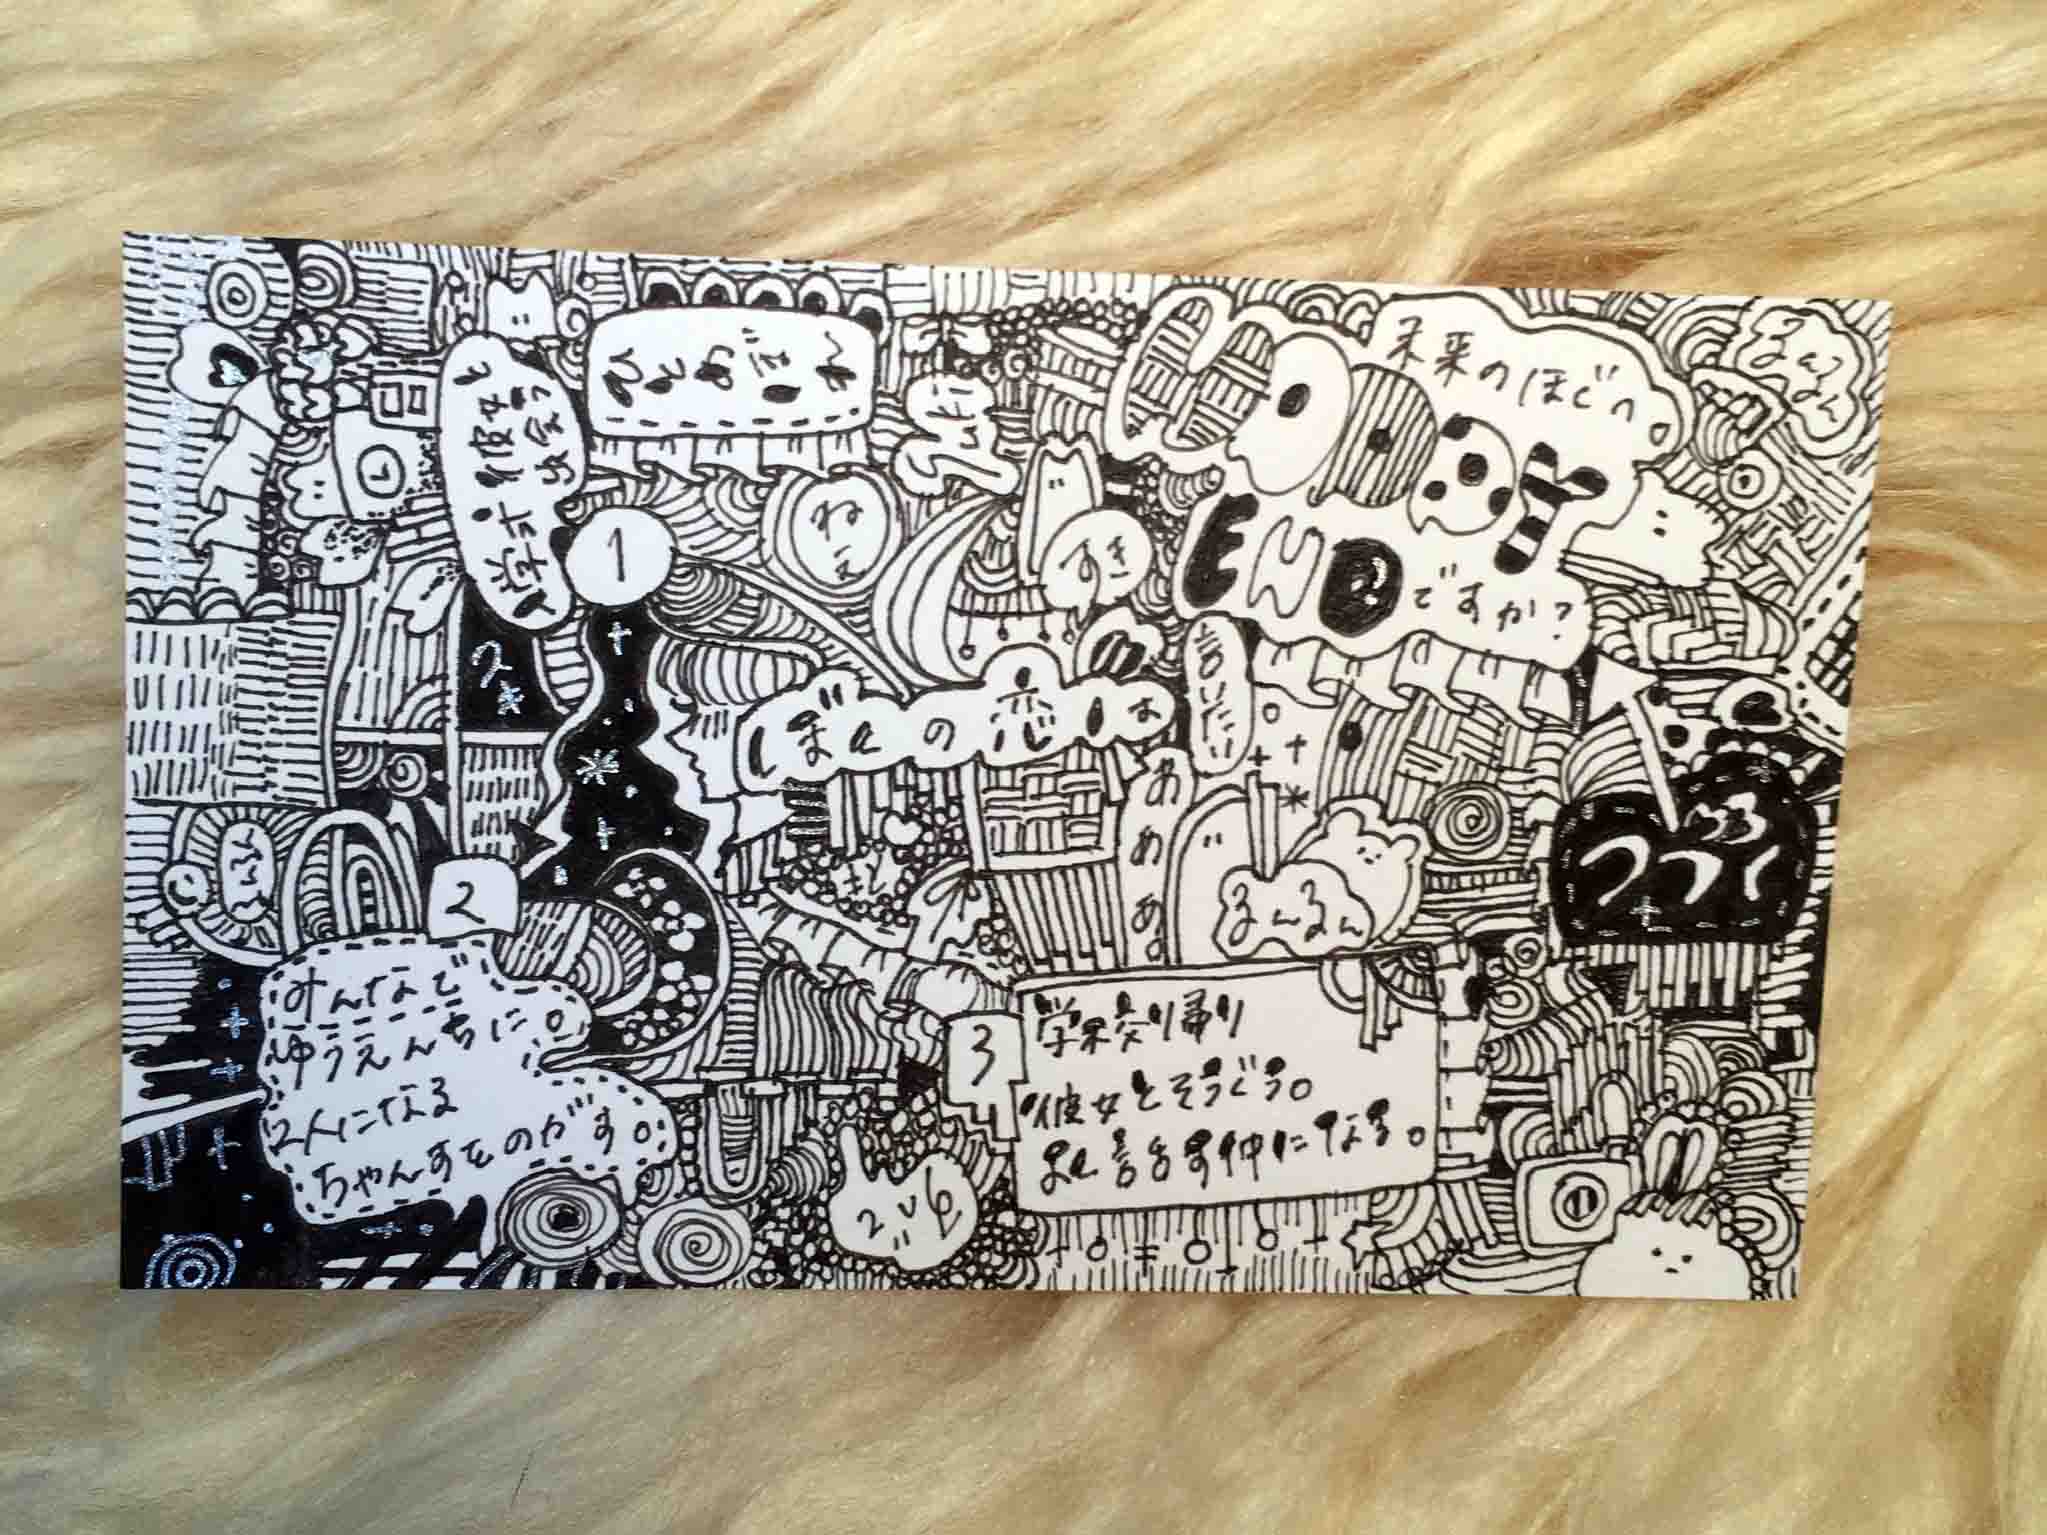 ひとめぼれ
入学式 彼女と
出会う
1
ねえ
すき
未来のぼくへ
GOODBY
END
ですか?
るんるん
ぼくの恋は
言いたい
2
みんなで
ゆうえんちに。
2人になる
ちゃんすをのがす。
るんるん
つづく
3
学校帰り
彼女とそうぐう。
よく言舌す仲になる。